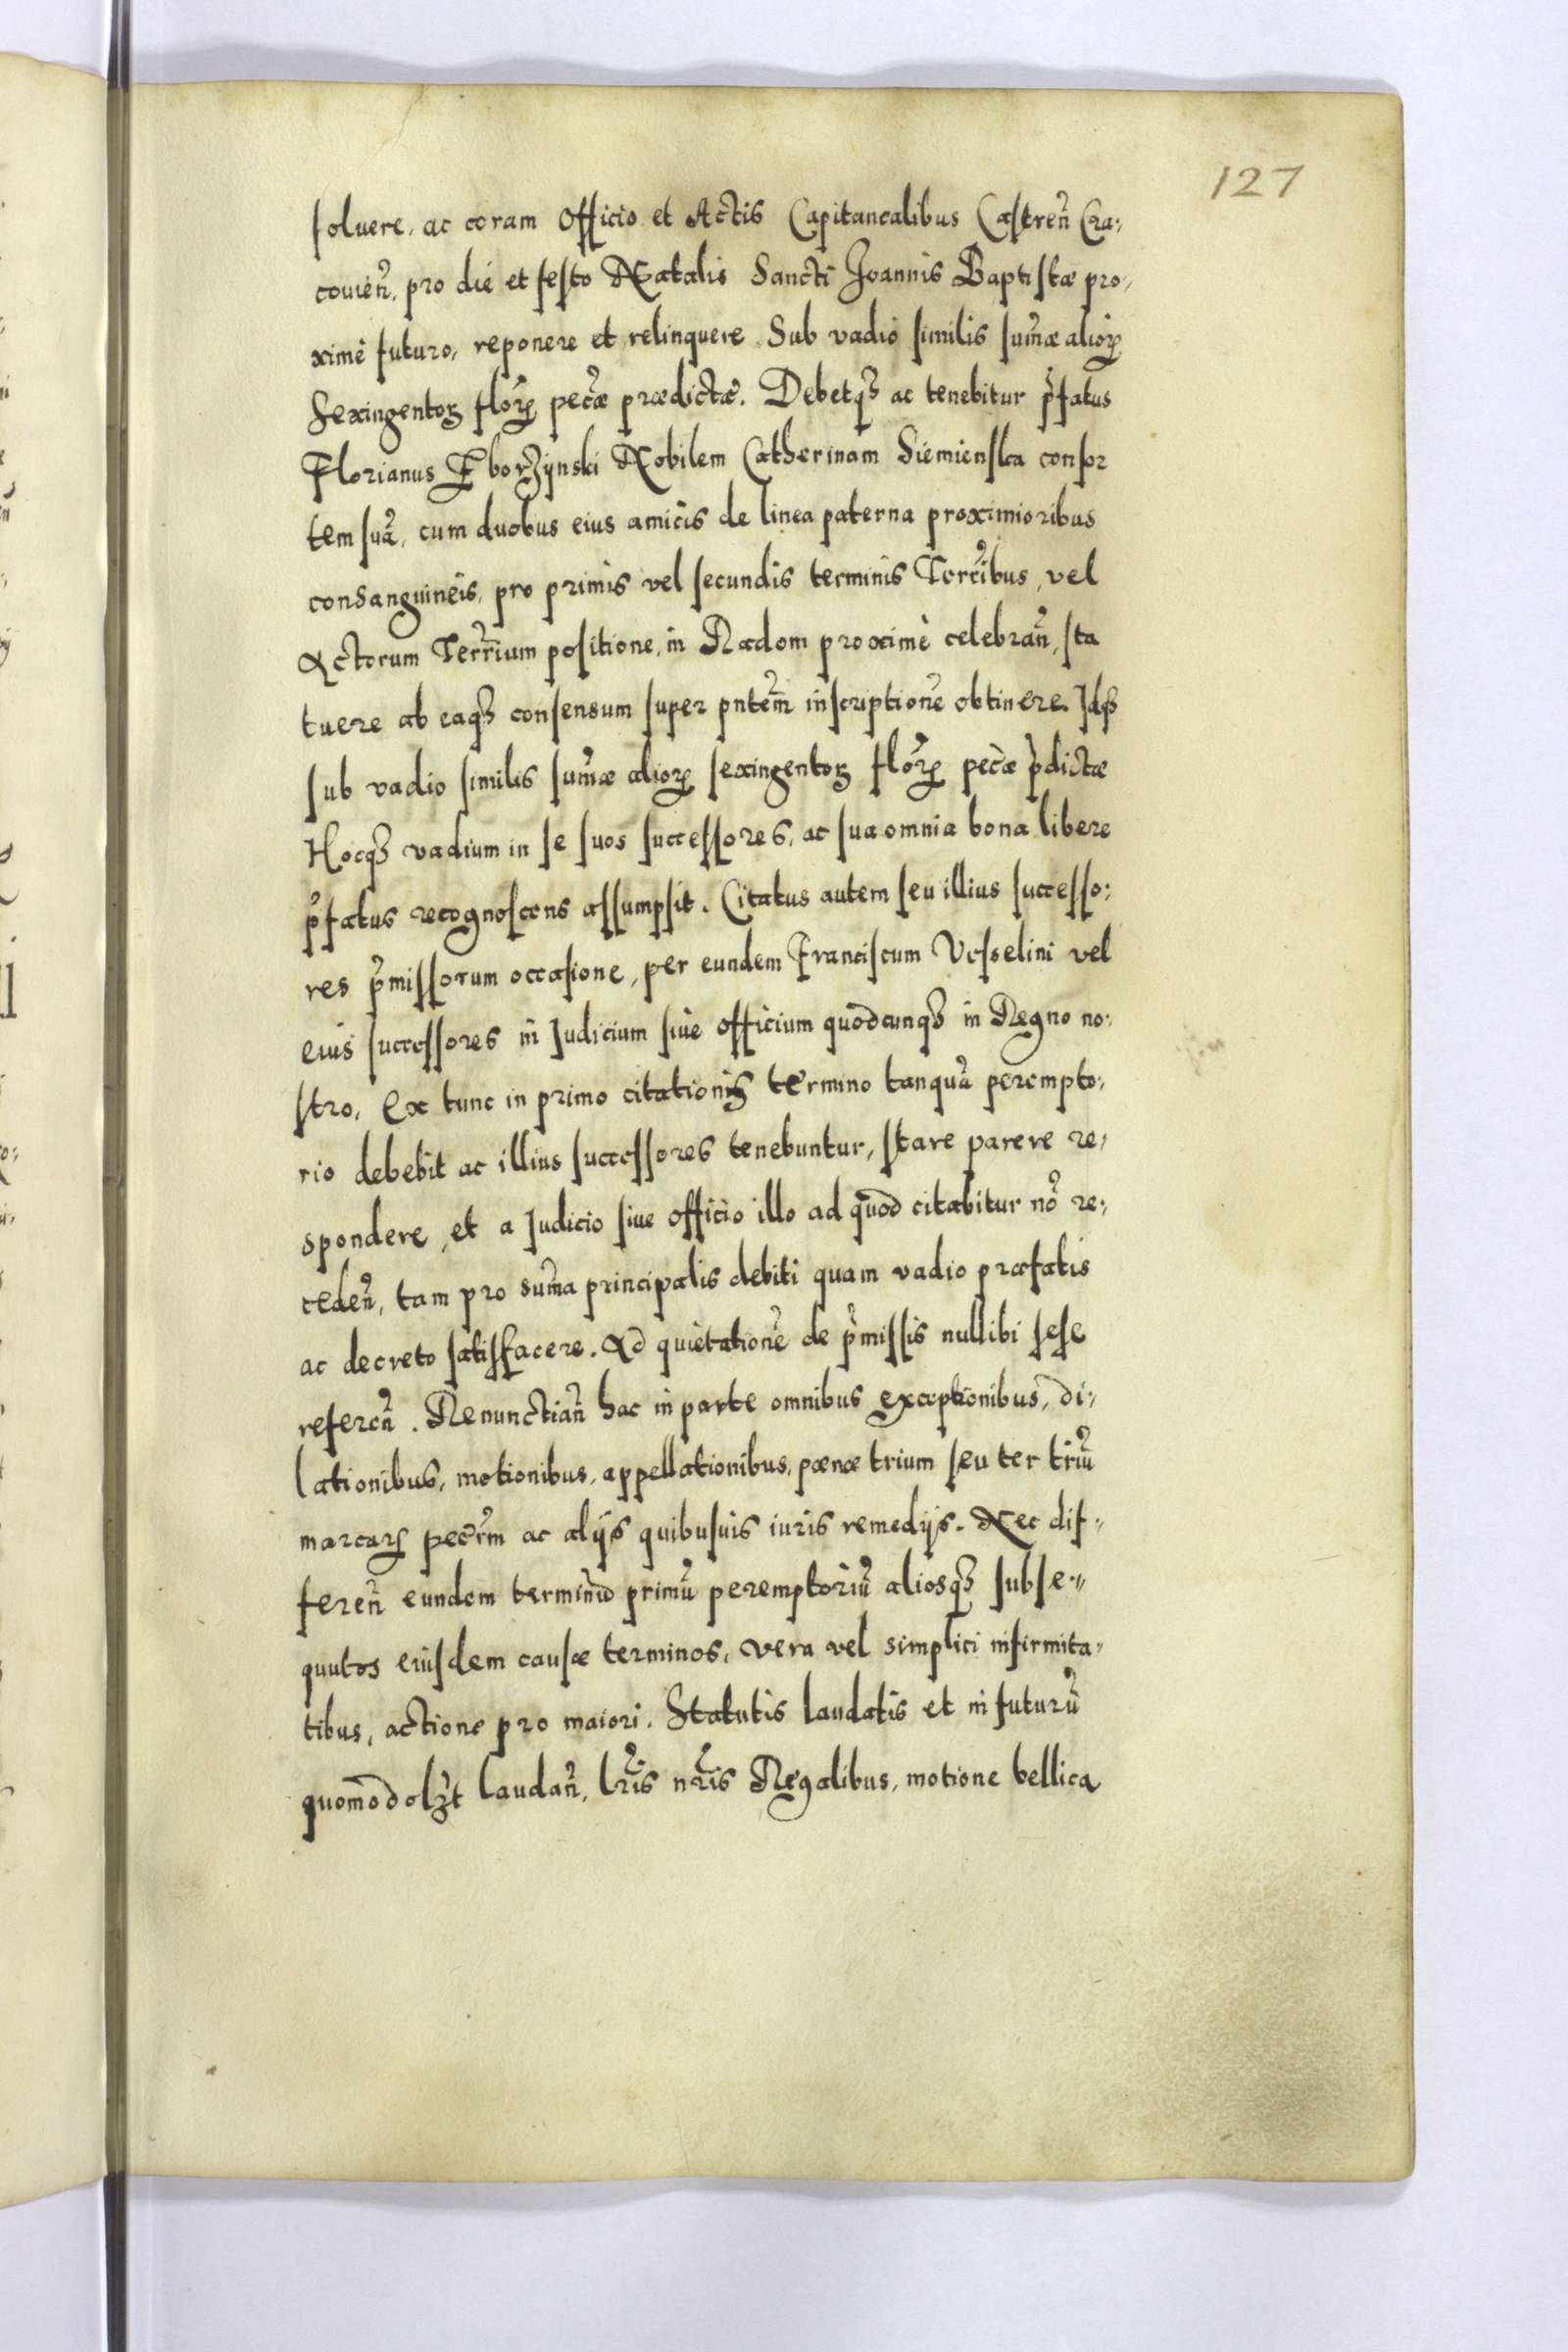 127
soluere, ac coram Officio et Actis Capitanealibus Castren̄ Cra:
couien̄, pro die et festo Natalis Sancti Joannis Baptistæ pro,
ximè futuro, reponere et relinquere. Sub vadio similis sum̄æ alioꝝ
Sexingentoꝝ floꝝ pecæ prædictæ. Debetqꝫ ac tenebitur p̄fatus
Florianus Zborzynski Nobilem Catherinam Siemienska consor
tem suā, cum duobus eius amicis de linea paterna proximioribus
consanguineis, pro primis vel secundis terminis Terr̄ibus, vel
Actorum Terr̄ium positione, in Radom proximè celebran̄, sta
tuere ab eaqꝫ consensum super pn̄tem inscriptionē obtinere. Idqꝫ
sub vadio similis sum̄æ alioꝝ sexingentoꝝ floꝝ pecæ p̄dictæ
Hocqꝫ vadium in se suos successores, ac sua omnia bona libere
p̄fatus recognoscens assumpsit. Citatus autem seu illius successo:
res p̄missorum occasione, per eundem Franciscum Vesselini vel
eius successores in Judicium siue officium quodcunqꝫ in Regno no:
stro, Ex tunc in primo citationis termino tanquā perempto:
rio debebit ac illius successores tenebuntur, stare parere re,
spondere, et a Judicio siue officio illo ad quod citabitur nō re:
ceden̄, tam pro sum̄a principalis debiti quam vadio præfatis
ac decreto satisfacere. Ad quietationē de p̄missis nullibi sese
referen̄. Renunctian̄ hac in parte omnibus exceptionibus, di,
lationibus, motionibus, appellationibus, pœnæ trium seu ter triū
marcaꝝ pec̄rm ac alijs quibusuis iuris remedijs. Nec dif,
feren̄ eundem terminū primū peremptoriū aliosqꝫ subse,
quutos eiusdem causæ terminos, vera vel simplici infirmita,
tibus, actione pro maiori. Statutis laudatis et in futurū
quomodolꝫt laudan̄, lr̄is nr̄is Regalibus, motione bellica